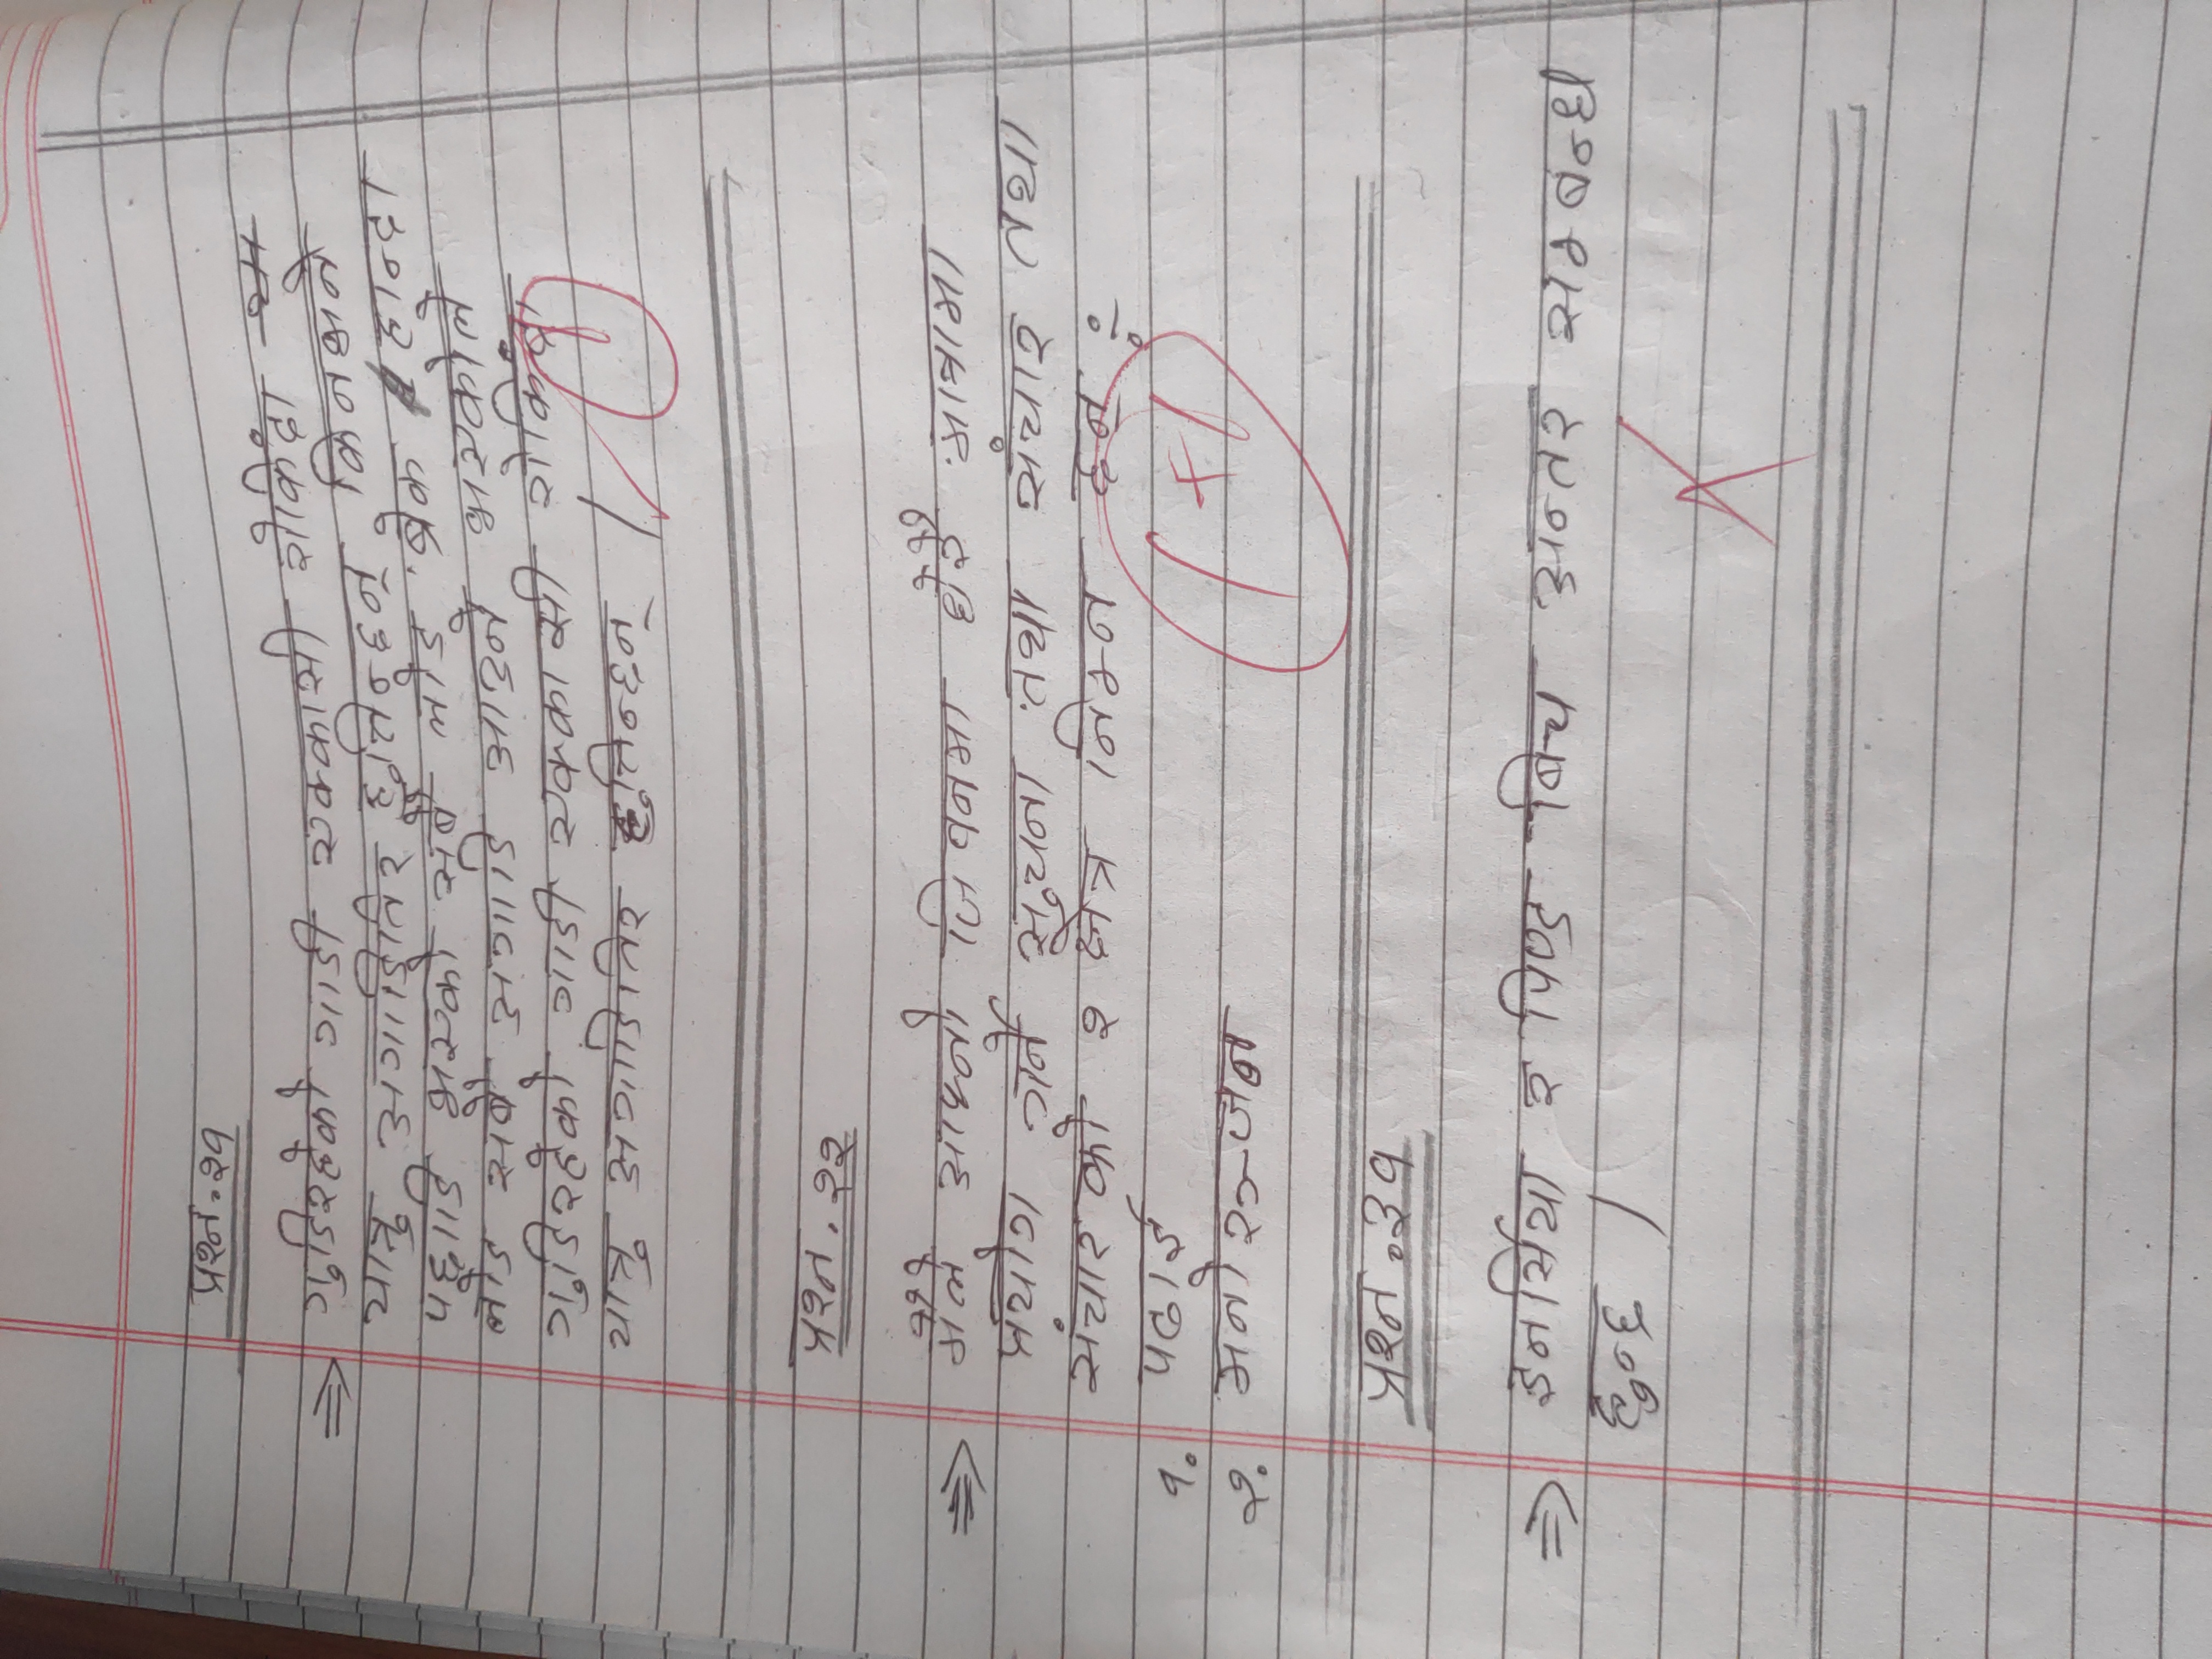 प्रश्न.२१
⇒ गुडिरहेको गाडी एक्कासी रोकिंदा
यात्रु अगाडितिर हुत्तिन्छन् किनभने
पछाडि भएको सबै लोड ब्रेक हान्दा
लोड सबै अगाडि आउने भएकोले
गुडिरहेको गाडी एक्कासी रोकिंदा
यात्रु अगाडितिर हुत्तिन्छन् । 1
प्रश्न.२२
⇒ मैले आफ्नो जिवनमा धेरै मात्रामा
प्रयोग गर्ने सुचना तथा संचार तथा
संचारको २ क्षेत्र निम्न छन् :-
१. पढाई
२. मनोरञ्जन
1+1
प्रश्न.३१
⇒ इनर्सिया र पिण्ड बिच अन्तर सम्बन्ध
हुन्छ ।